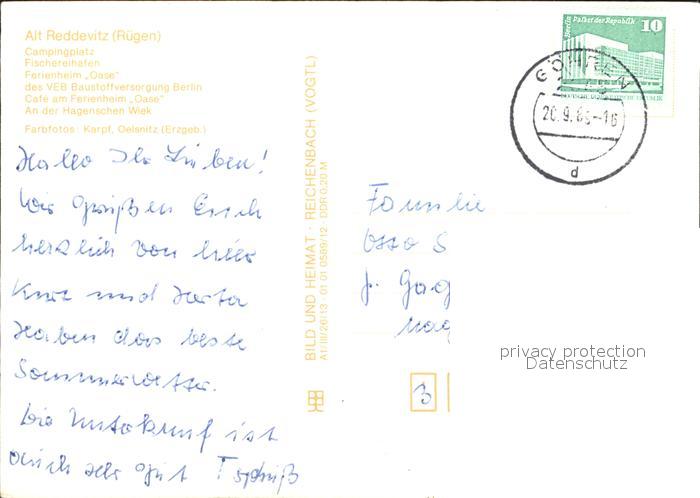 Alt Reddevitz (Rügen)
Campingplatz
Fischereihafen
Ferienheim „Oase"
des VEB Baustoffversorgung Berlin
Cafe am Ferienheim „Oase"
An der Hagenschen Wiek
Farbfotos: Karpf, Oelsnitz (Erzgeb.)
Hallo Ihr Lieben!
Wir grüßen Euch
herzlich von hier
Kurt und Herta
Haben das beste
Sommerwetter.
Die Unterkunft ist
auch sehr gut
BILD UND HEIMAT · REICHENBACH (VOGTL)
A1/III/26/13 · 01 01 0589/12 · DDR 0,20 M
Berlin Palast der Republik
10
GÖHREN
20.9. -16
d
Familie
Otto S
privacy protection
Datenschutz